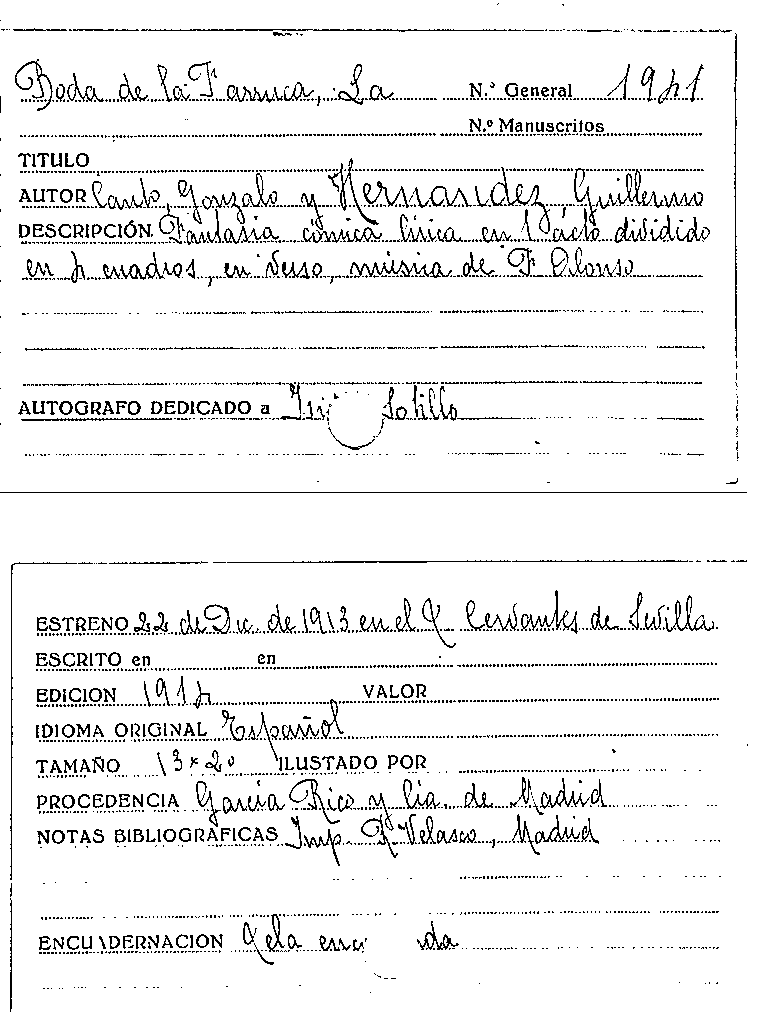 Boda de la Farruca, La N.º General 1941
N.º Manuscritos
TITULO
AUTOR Canto, Gonzalo y Hernandez Guillermo
DESCRIPCIÓN Fantasia cómica lírica en 1 acto dividido
en 4 cuadros, en verso, música de F Alonso
AUTOGRAFO DEDICADO a Sotillo
ESTRENO 22 de Dic. de 1913 en el T Cervantes de Sevilla
ESCRITO en en
EDICION 1914 VALOR
IDIOMA ORIGINAL Español
TAMAÑO 13 x 20 ILUSTADO POR
PROCEDENCIA García Rico y Cia. de Madrid
NOTAS BIBLIOGRAFICAS Imp. R Velasco, Madrid
ENCUADERNACION Tela